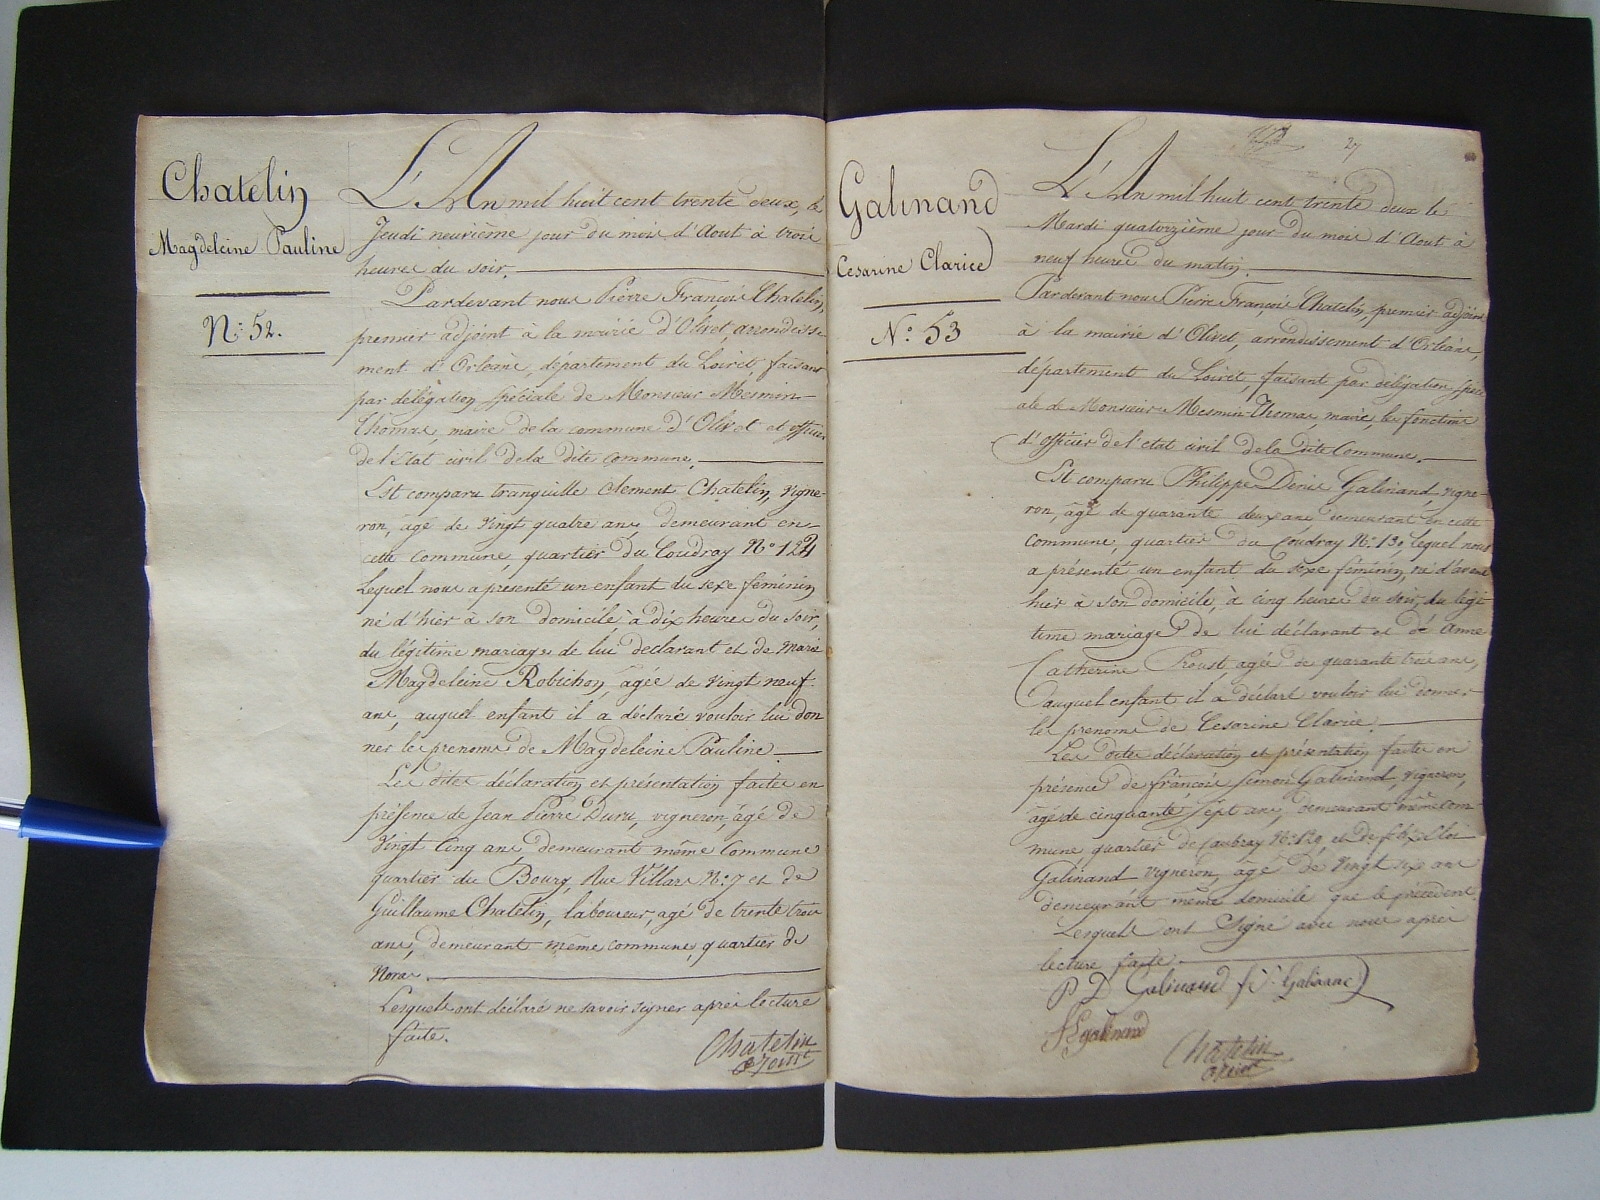 Chatelin
Magdeleine Pauline
N.° 52.
L'An mil huit cent trente deux, le
Jeudi neuvième jour du mois d'Aout à trois
heures du soir.
Pardevant nous Pierre François Chatelin,
premier adjoint à la mairie d'Olivet, arrondisse-
ment d'Orléans, département du Loiret, faisant
par délégation spéciale de Monsieur Mesmin-
Thomas, maire de la commune d'Olivet et officier
de l'Etat civil de la dite commune.
Est comparu tranquille Clement Chatelin, vigne-
ron, âgé de vingt quatre ans, demeurant en
cette commune, quartier du Coudray N° 124
Lequel nous a présenté un enfant du sexe féminin
né d'hier à son domicile à dix heures du soir,
du légitime mariage de lui déclarant et de Marie
Magdeleine Robichon, âgée de vingt neuf
ans, auquel enfant il a déclaré vouloir lui don
ner les prenoms de Magdeleine Pauline
Les dites déclaration et présentation faites en
présence de Jean Pierre Duru, vigneron, âgé de
vingt cinq ans, demeurant même Commune
quartier du Bourg, Rue Villars N.° 7 et de
Guillaume Chatelin, laboureur, agé de trente trois
ans, demeurant même commune, quartier de
Noras
Lesquels ont déclaré ne savoir signer après lecture
faite.
Chatelin
adjoint
27
Galinand
Cesarine Clarice
N.° 53
L'An mil huit cent trente deux le
Mardi quatorzième jour du mois d'Aout à
neuf heures du matin.
Pardevant nous Pierre François Chatelin, premier adjoint
à la mairie d'Olivet, arrondissement d'Orléans,
département du Loiret, faisant par délégation spéci
ale de Monsieur Mesmin-Thomas, maire, les fonctions
d'officier de l'état civil de la dite Commune.
Est comparu Philippe Denis Galinand, vigne-
ron, âgé de quarante deux ans demeurant en cette
commune, quartier du Coudray N.° 130, lequel nous
a présenté un enfant du sexe féminin, né d'avant
hier à son domicile, à cinq heures du soir, du légi
time mariage de lui déclarant et de Anne
Catherine Proust, agée de quarante trois ans,
auquel enfant il a déclaré vouloir lui donner
les prenoms de Cesarine Clarice
Les dites déclaration et présentation faites en
présence de françois Simon Galinand, vigneron,
âgé de cinquante sept ans, demeurant même com-
mune quartier de N.° 120, et de
Galinand vigneron, âgé de vingt six ans
demeurant même domicile que le précédent.
Lesquels ont signé avec nous après
lecture faite
P D Galinand f S Galinand
Galinand
Chatelin
adjoint